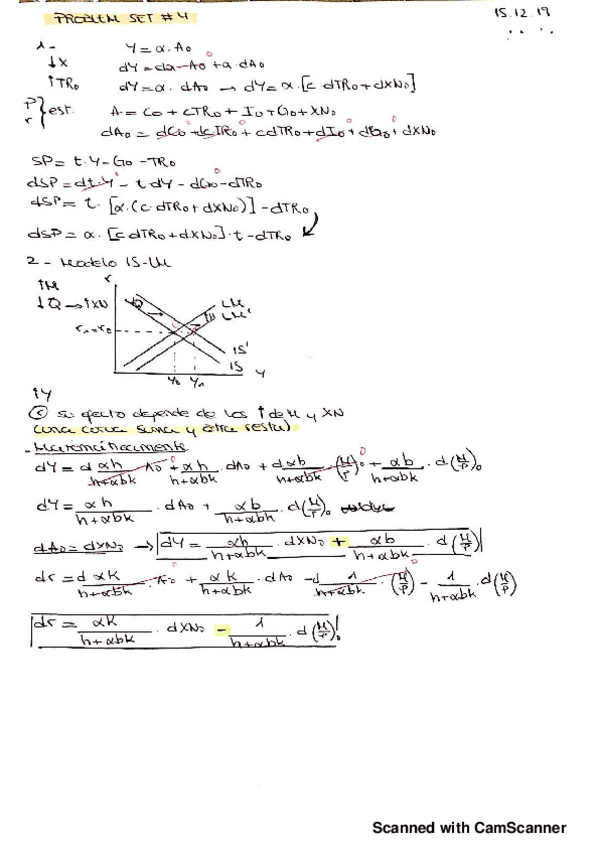 PROBLEM SET #4
15.12.19
1- Y = α·A₀
↓X dY = dα·A₀ + α·dA₀
↑TR₀ dY = α·dA₀ → dY = α·[c dTR₀ + dXN₀]
P r } est. A = C₀ + cTR₀ + I₀ + G₀ + XN₀
dA₀ = dC₀ + dcTR₀ + cdTR₀ + dI₀ + dG₀ + dXN₀
SP = t·Y - G₀ - TR₀
dSP = dt·Y - tdY - dG₀ - dTR₀
dSP = t·[α·(c·dTR₀ + dXN₀)] - dTR₀
dSP = α·[c dTR₀ + dXN₀]·t - dTR₀
2- Modelo IS-LM
↑M
↓Q → ↑XN
r
LM
LM'
r₁=r₀
IS'
IS
Y₀ Y₁ Y
↑Y
su efecto depende de los ↑ de M y XN
(una curva suma y otra resta)
Matemáticamente
dY = d αh/h+αbk · A₀ + αh/h+αbk · dA₀ + d αb/h+αbk · (M/P)₀ + αb/h+αbk · d(M/P)₀
dY = αh/h+αbk · dA₀ + αb/h+αbk · d(M/P)₀
dA₀ = dXN₀ → dY = αh/h+αbk · dXN₀ + αb/h+αbk · d(M/P)
dr = d αk/h+αbk · A₀ + αk/h+αbk · dA₀ - d 1/h+αbk · (M/P) - 1/h+αbk · d(M/P)
dr = αk/h+αbk · dXN₀ - 1/h+αbk · d(M/P)₀
Scanned with CamScanner